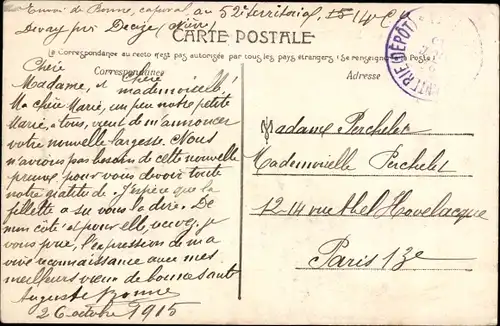 Envoi de Bonne, caporal au 52e territorial, 14e Cie
Devay près Decize (Nièvre)
CARTE POSTALE
La Correspondance au recto n'est pas autorisée par tous les pays étrangers (Se renseigner à la Poste)
Correspondance
Adresse
INFANTERIE (DÉPÔT)
Chère Chère
Madame, et mademoiselle,
Ma chère Marie, un peu notre petite
Marie, à tous, vient de m'annoncer
votre nouvelle largesse. Nous
n'avions pas besoin de cette nouvelle
preuve pour vous devoir toute
notre gratitude. J'espère que la
fillette a su vous la dire. De
mon côté et pour elle,
prie, l'expression de ma
vive reconnaissance avec mes
meilleurs vœux de bonne santé
Auguste Bonne
26 octobre 1915
Madame Perchelet
Mademoiselle Perchelet
12-14 rue Abel Hovelacque
Paris 13e